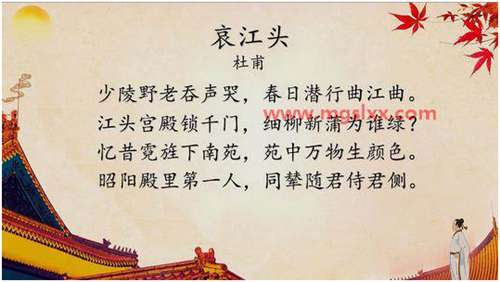 哀江头
杜甫
少陵野老吞声哭，春日潜行曲江曲。
www.mgslxx.com
江头宫殿锁千门，细柳新蒲为谁绿？
忆昔霓旌下南苑，苑中万物生颜色。
昭阳殿里第一人，同辇随君侍君侧。